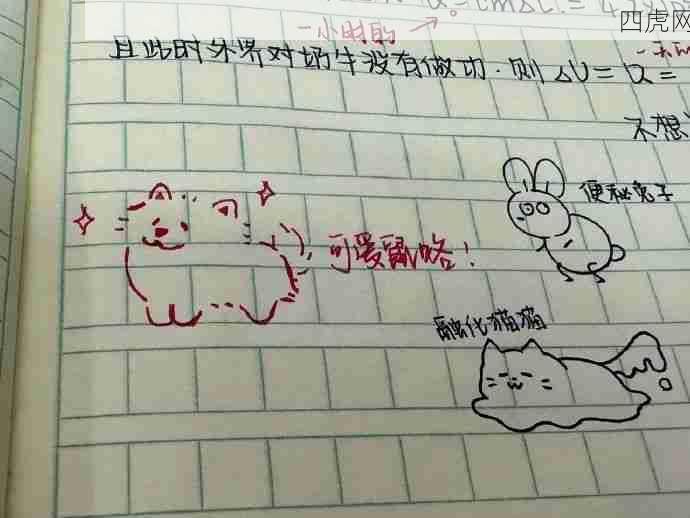 一小时的
四虎网
且此时外界对奶牛没有做功.则ΔU=Q=
不想
便秘兔子
可爱鼠咯!
融化猫猫